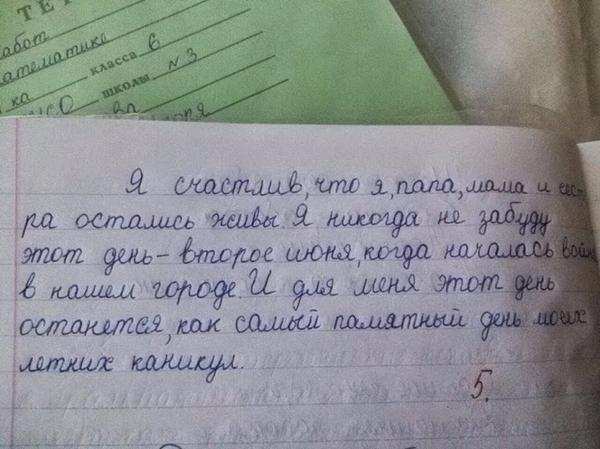 ТЕТ
работ
математике
ка класса 6
школы №3
Я счастлив, что я, папа, мама и сест-
ра остались живы. Я никогда не забуду
этот день - второе июня, когда началась война
в нашем городе. И для меня этот день
останется, как самый памятный день моих
летних каникул.
5.